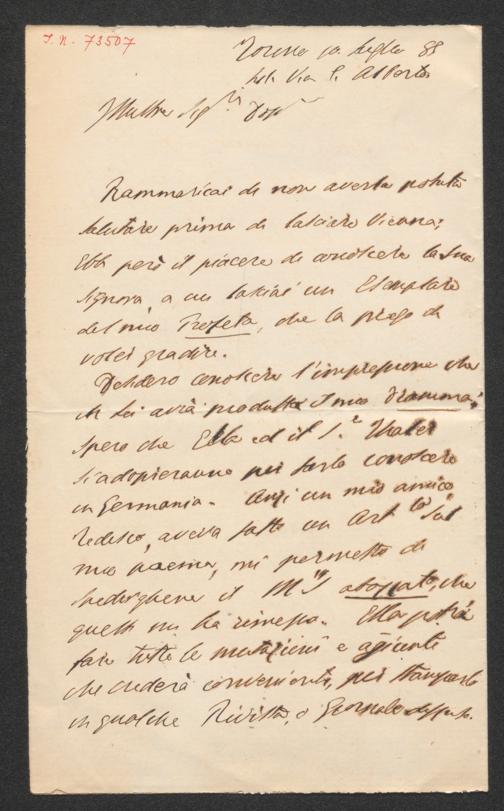 I. N. 73507
Torino 10 luglio 88
Via S. Alberto
Illustre Sig.ri Dott
Rammaricai di non averla potuta
salutare prima di lasciare Vienna;
Ebbi però il piacere di conoscere la sua
Signora, a cui lasciai un Esemplare
del mio Profeta, che la prego di
voler gradire.
Desidero conoscere l'impressione che
in Lei avrà prodotta il mio dramma;
spero che Ella ed il S.r Thaler
si adopreranno per farlo conoscere
in Germania. Anzi un mio amico
Tedesco, aveva fatto un Art.lo sul
mio poema, mi permetto di
spedirgliene il M.S abozzato, che
questi mi ha rimesso. Ella potrà
fare tutte le mutazioni e aggiunte
che crederà conveniente, per stamparlo
in qualche Rivista, o Giornale